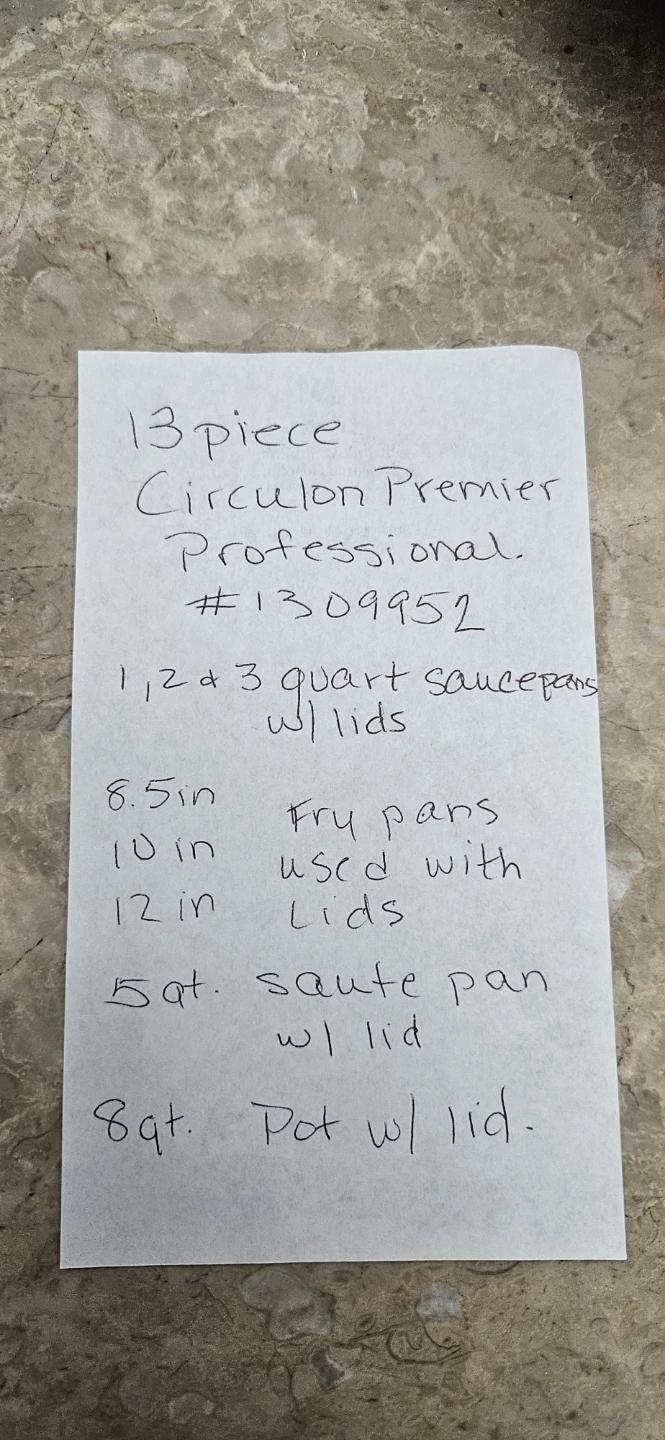 13 piece
Circulon Premier
Professional.
#1309952
1, 2 & 3 quart saucepans
w/ lids
8.5in
10 in
12 in
Fry pans
used with
Lids
5 qt. saute pan
w/ lid
8qt. Pot w/ lid.